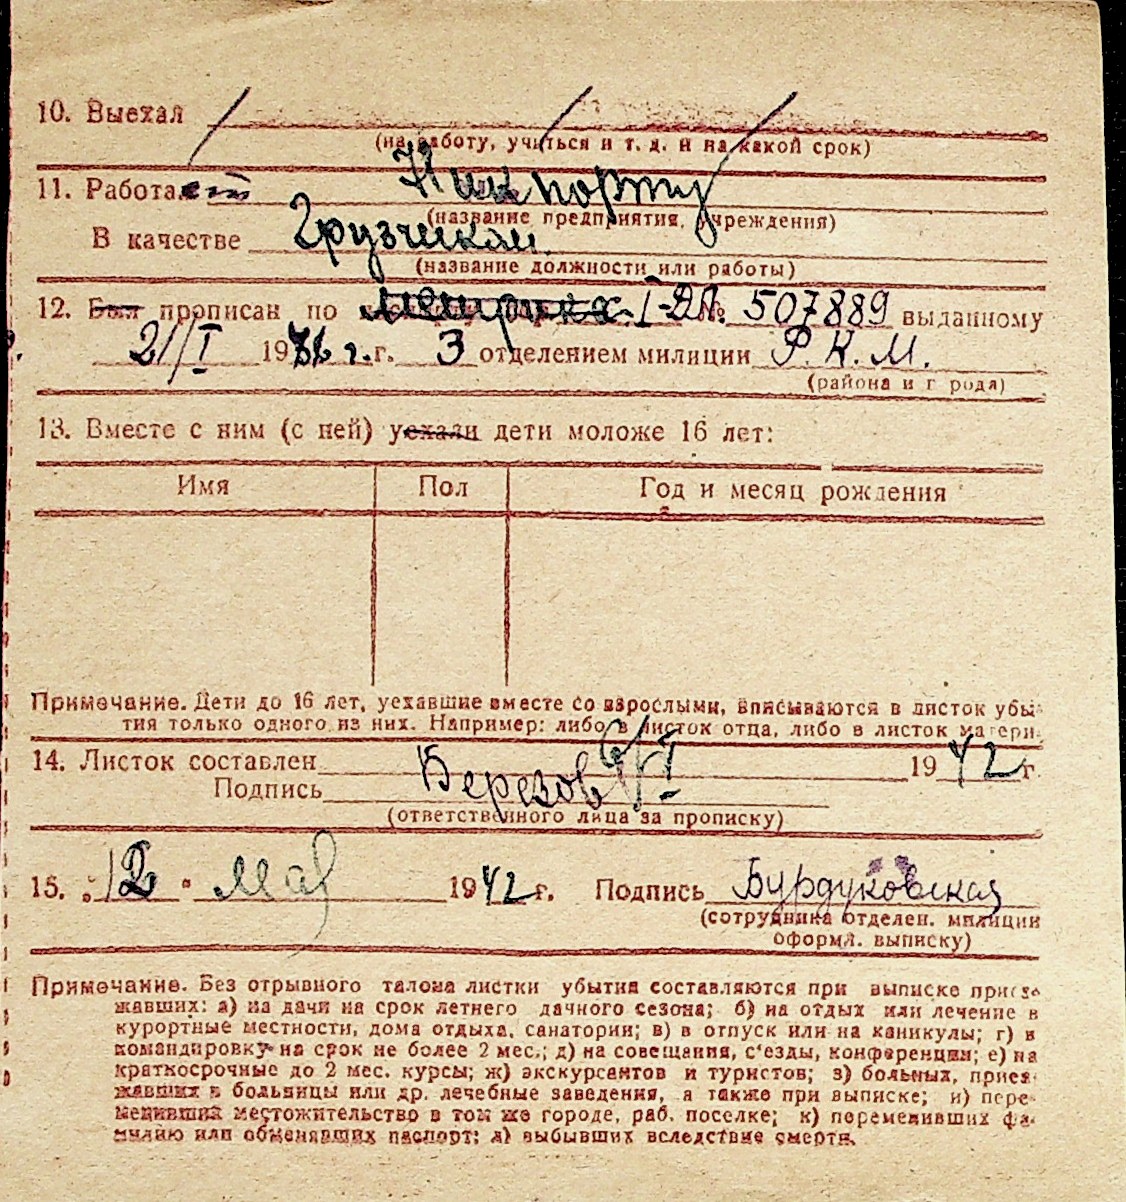 10. Выехал
(на работу, учиться и т. д. и на какой срок)
11. Работает Ник порту
(название предприятия, учреждения)
В качестве Грузчиком
(название должности или работы)
12. Был прописан по I-ДЛ № 507889 выданному
21/I 19 г. г. 3 отделением милиции Р. К. М.
(района и г рода)
13. Вместе с ним (с ней) уехали дети моложе 16 лет:
Имя Пол Год и месяц рождения
Примечание. Дети до 16 лет, уехавшие вместе со взрослыми, вписываются в листок убы-
тия только одного из них. Например: либо в листок отца, либо в листок матери.
14. Листок составлен 1942 г.
Подпись Березов
(ответственного лица за прописку)
15. „12" мая 1942 г. Подпись Бурдуковская
(сотрудника отделен. милиции
оформл. выписку)
Примечание. Без отрывного талона листки убытия составляются при выписке приез-
жавших: а) на дачи на срок летнего дачного сезона; б) на отдых или лечение в
курортные местности, дома отдыха, санатории; в) в отпуск или на каникулы; г) в
командировку на срок не более 2 мес.; д) на совещания, с'езды, конференции; е) на
краткосрочные до 2 мес. курсы; ж) экскурсантов и туристов; з) больных, приез-
жавших в больницы или др. лечебные заведения, а также при выписке; и) пере-
менивших местожительство в том же городе, раб. поселке; к) переменивших фа-
милию или обменявших паспорт; л) выбывших вследствие смерти.